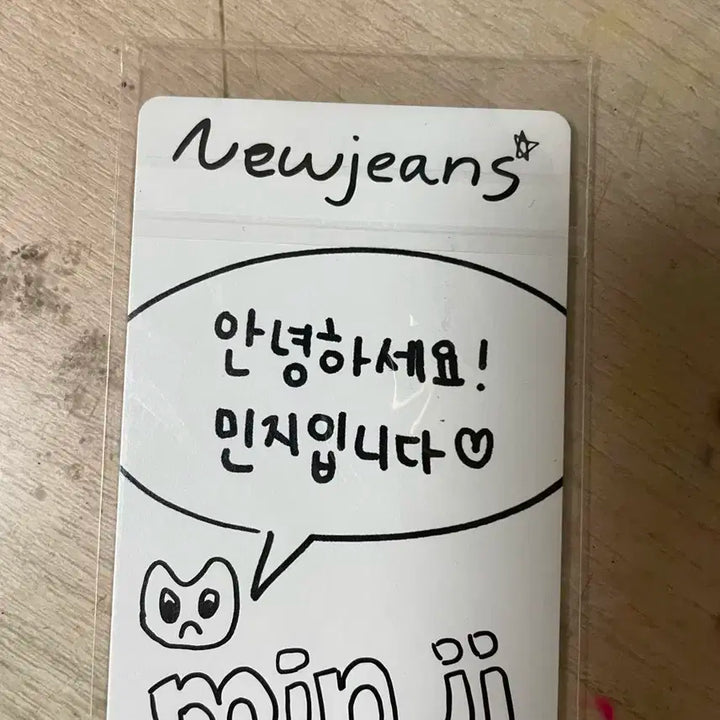 Newjeans
안녕하세요!
민지입니다♡
minji